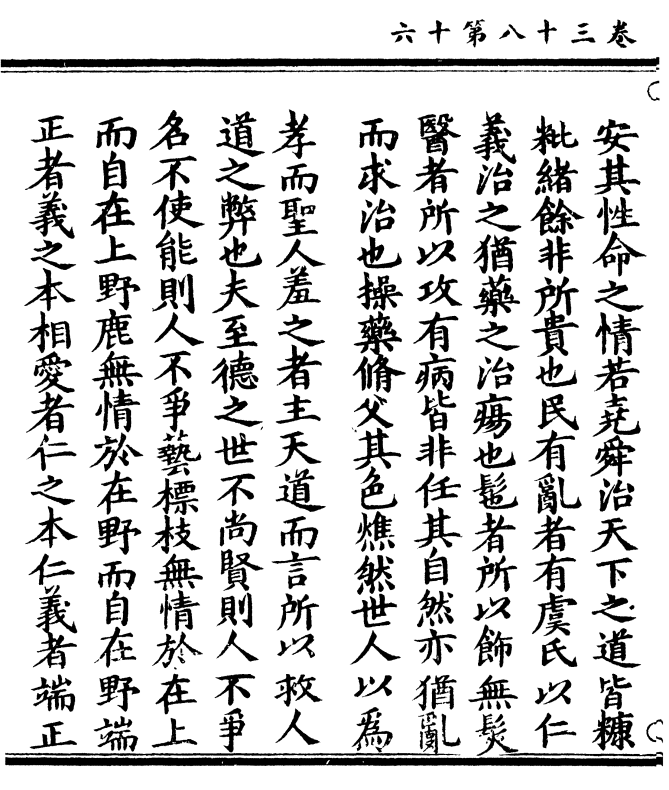 卷三十八第十六
安其性命之情若堯舜治天下之道皆糠
粃緒餘非所貴也民有亂者有虞氏以仁
義治之猶藥之治瘍也髢者所以飾無髮
醫者所以攻有病皆非任其自然亦猶亂
而求治也操藥脩父其色燋然世人以爲
孝而聖人羞之者主天道而言所以救人
道之弊也夫至德之世不尚賢則人不爭
名不使能則人不爭藝標枝無情於在上
而自在上野鹿無情於在野而自在野端
正者義之本相愛者仁之本仁義者端正